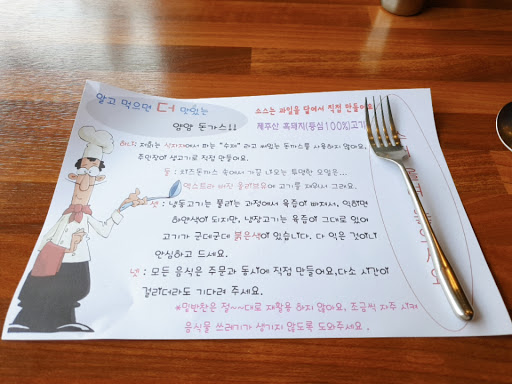 알고 먹으면 더 맛있는
얌얌 돈가스!!
소스는 과일을 달여서 직접 만들어요
제주산 흑돼지(등심100%)고기
하나: 저희는 식자재에서 파는 "수제" 라고 써있는 돈가스를 사용하지 않아요.
주인장이 생고기로 직접 만들어요.
둘 : 치즈돈까스 속에서 가끔 나오는 투명한 오일은...
엑스트라 버진 올리브유에 고기를 재워서 그래요.
셋 : 냉동고기는 물리는 과정에서 육즙이 빠져서, 익히면
하얀색이 되지만, 냉장고기는 육즙이 그대로 있어
고기가 군데군데 붉은색이 있습니다. 다 익은 것이니
안심하고 드세요.
넷 : 모든 음식은 주문과 동시에 직접 만들어요.다소 시간이
걸리더라도 기다려 주세요.
#밑반찬은 절~~대로 재활용 하지 않아요. 조금씩 자주 시켜
음식물 쓰레기가 생기지 않도록 도와주세요.